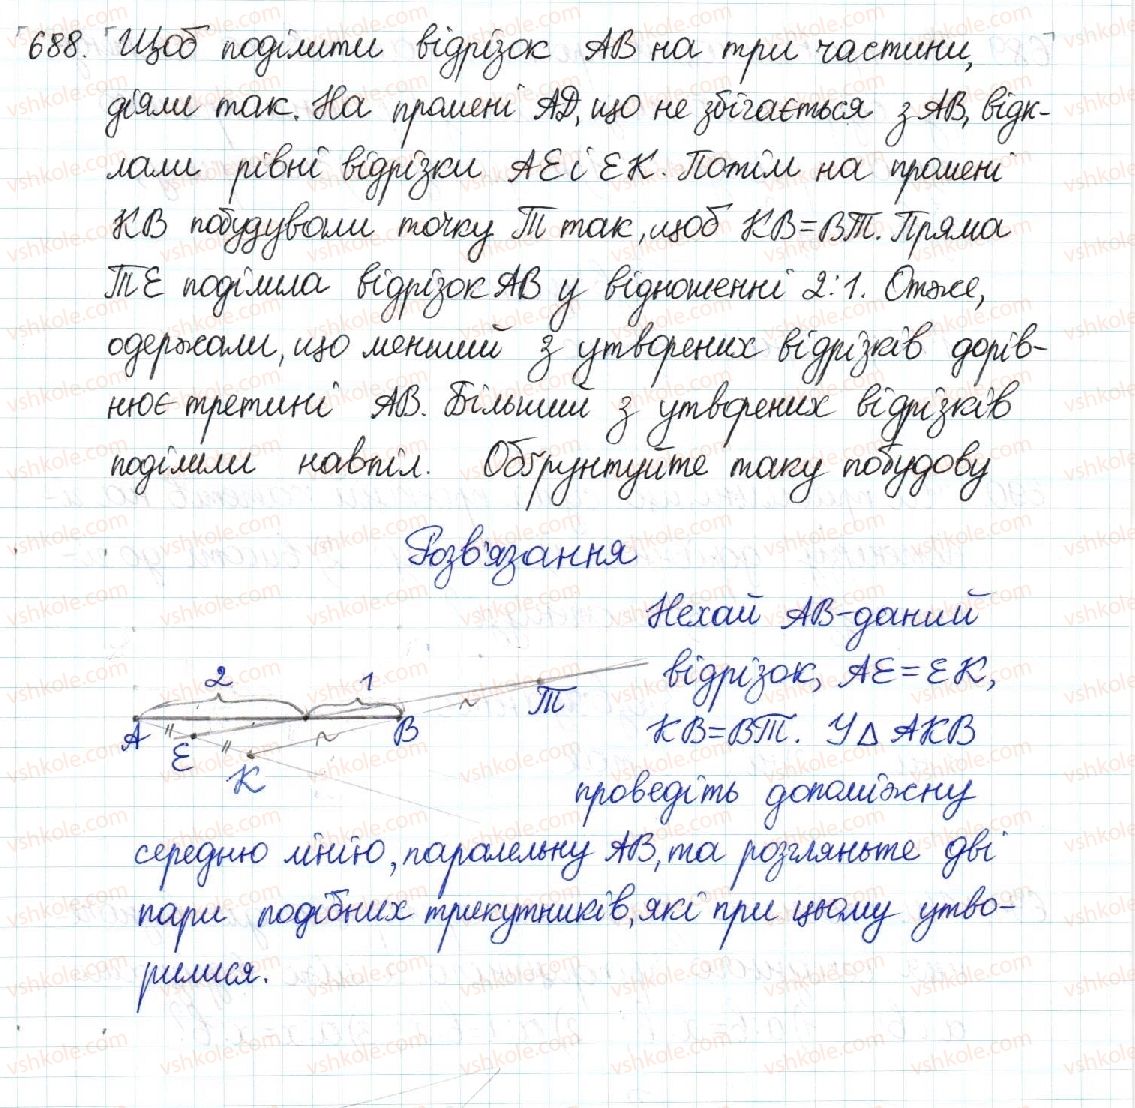 688. Щоб поділити відрізок АВ на три частини,
діяли так. На промені АD, що не збігається з АВ, відк-
лали рівні відрізки АЕ і ЕК. Потім на промені
КВ побудували точку Т так, щоб КВ=ВТ. Пряма
ТЕ поділила відрізок АВ у відношенні 2:1. Отже,
одержали, що менший з утворених відрізків дорів-
нює третині АВ. Більший з утворених відрізків
поділили навпіл. Обґрунтуйте таку побудову
Розв'язання
Нехай АВ-даний
відрізок, АЕ=ЕК,
КВ=ВТ. У △ АКВ
2
1
А
Е
К
В
Т
проведіть допоміжну
середню лінію, паралельну АВ, та розгляньте дві
пари подібних трикутників, які при цьому утво-
рилися.
vshkole.com